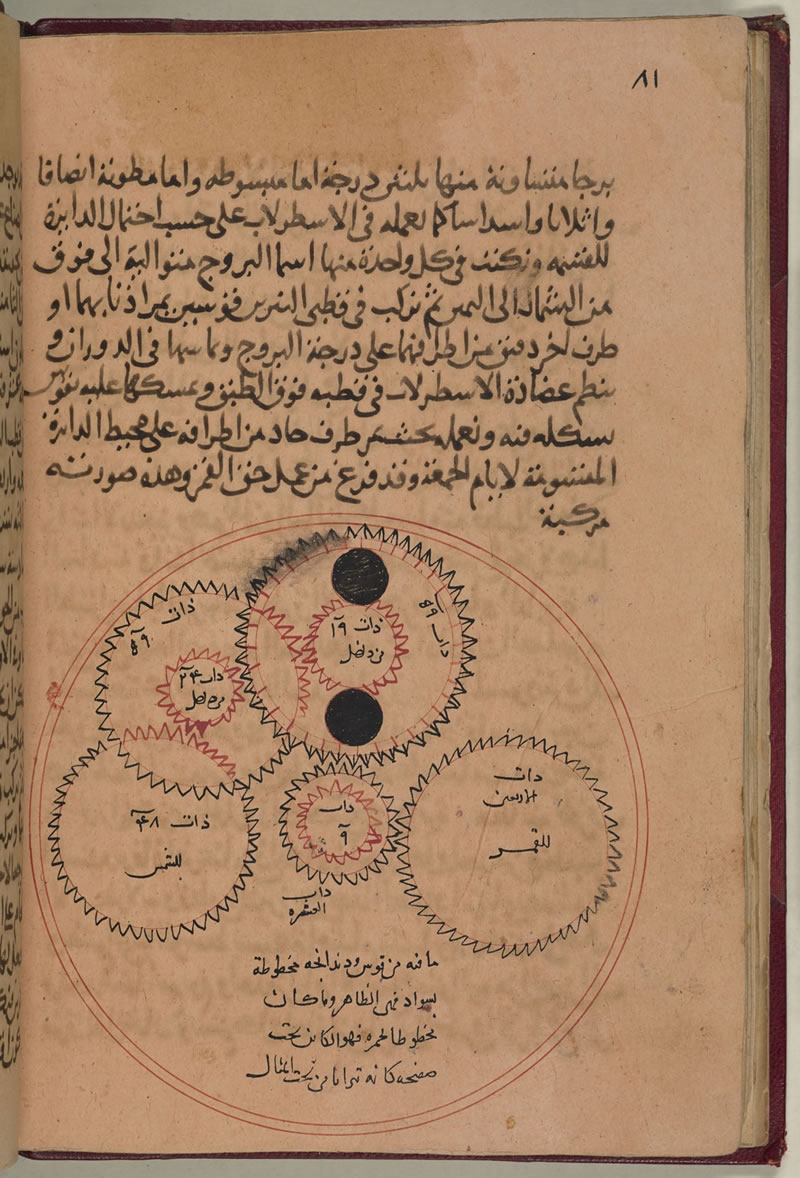 ٨١
برجا متساوية منها بلثى درجة اما مبسوطه واما مطوية انصافا
واثلاثا واسداسا كما نعمله فى الاسطرلاب على حسب احتمال الدايرة
للقسمه ونكتب فى كل واحدة منها اسما البروج متوالية الى فوق
من الشمال الى اليمين ثم نركب فى قطبى النيرين قوسين بمر اذنابهما او
طرف اخر دقيق من اطرافهما على درجة البروج وتماسها فى الدوران و
ننظم عضادة الاسطرلاب فى قطبه فوق الطبق ونمسكها عليه بفرس
يمسكه فيه ونعمله بحيث يمر طرف حاد من اطرافه على محيط الدايرة
المقسومة لايام الجمعة وقد فرغ من عمل حق القمر وهذه صورته
مركبة
ذات ٥٩
ذات ١٩
من داخل
ذات ٥٩
ذات ٢٤
من داخل
ذات ٤٨
للشمس
ذات
٩
ذات
العشره
ذات
الاربعين
للقمر
ما فيه من قوس ودندانجه مخطوطة
بسواد فهى الظاهر وما كان
مخطوطا بالحمره فهو الكاين تحت
صفيحه كانه ترايا من تحت